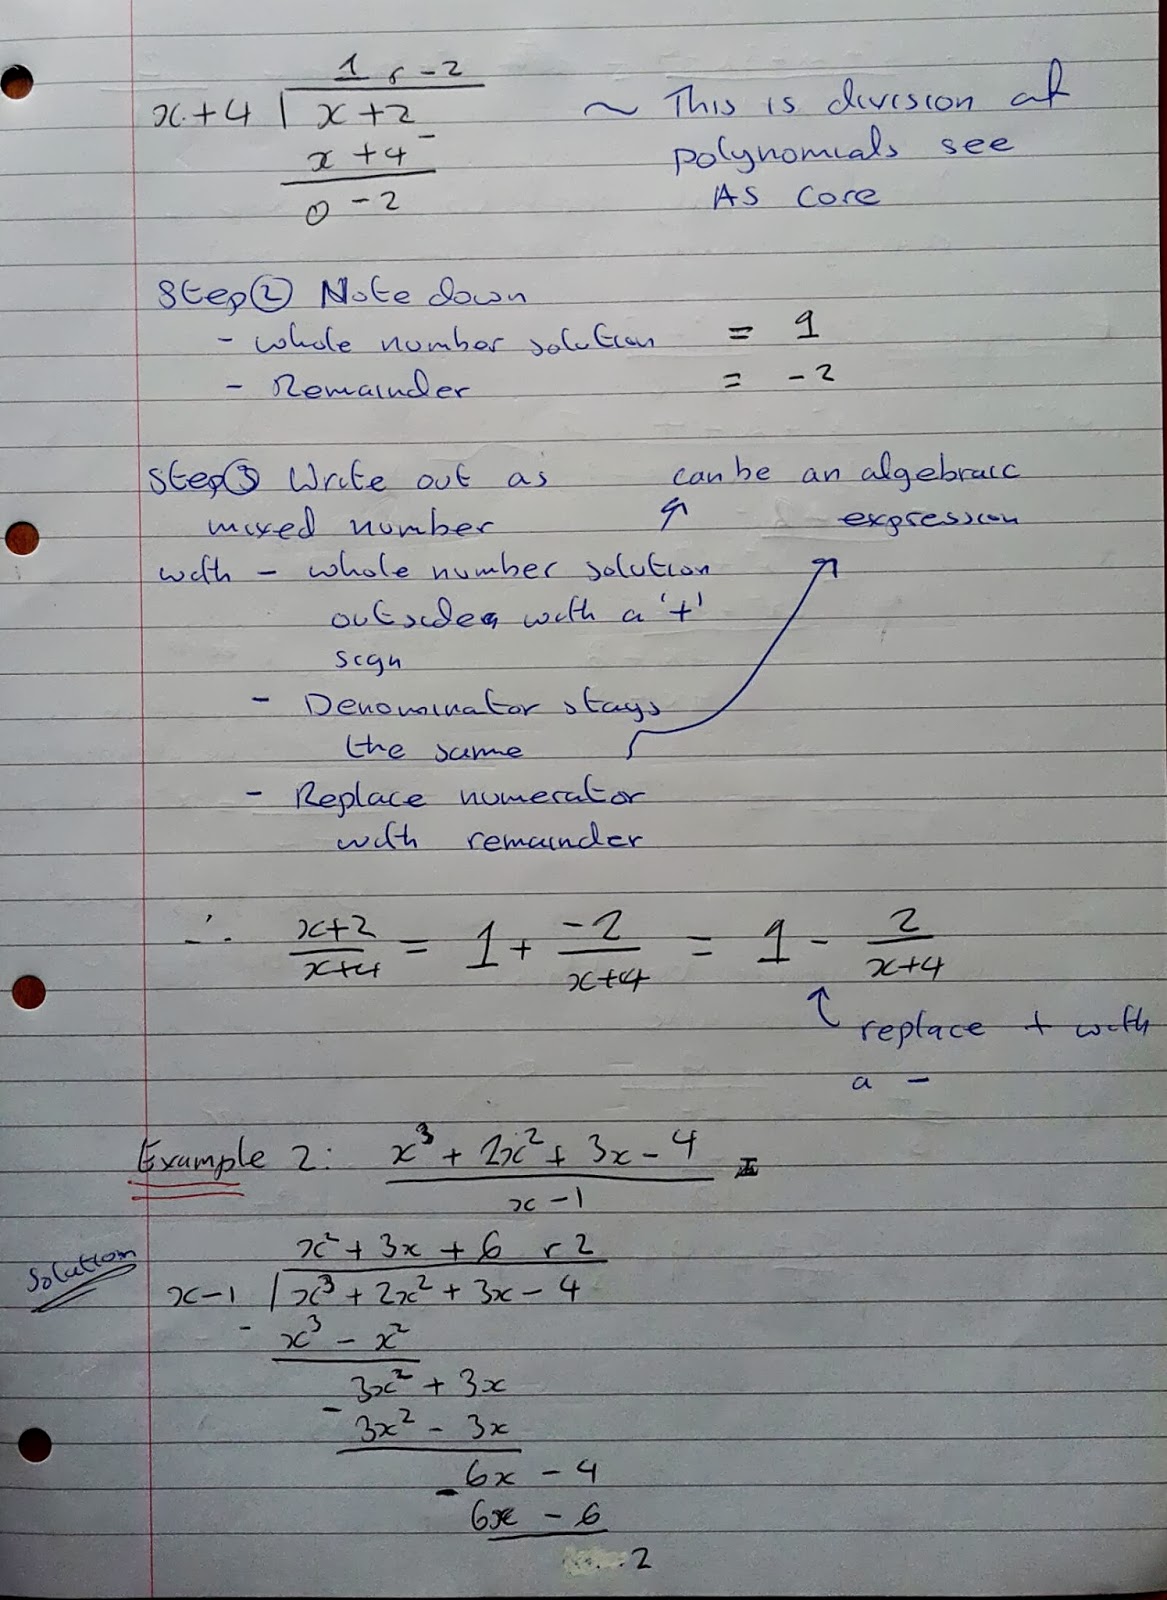 1 r -2
x+4 | x+2 ~ This is division of
x+4 - polynomials see
0 -2 AS Core
Step ② Note down
- whole number solution = 1
- Remainder = -2
Step ③ Write out as can be an algebraic
mixed number expression
with - whole number solution
outside with a '+'
sign
- Denominator stays
the same
- Replace numerator
with remainder
∴ x+2/x+4 = 1 + -2/x+4 = 1 - 2/x+4
replace + with
a -
Example 2: x³ + 2x² + 3x - 4
x - 1
Solution x² + 3x + 6 r 2
x-1 | x³ + 2x² + 3x - 4
- x³ - x²
3x² + 3x
- 3x² - 3x
6x - 4
- 6x - 6
2